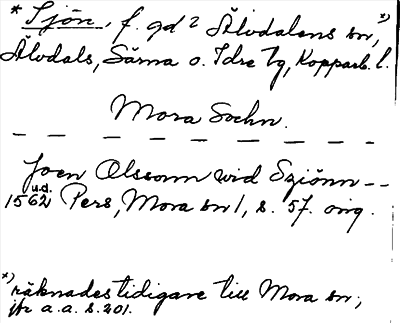 * Sjön, f. gd i Älvdalens sn, *)
Älvdals, Särna o. Idre tg, Kopparb. l.
Mora Sockn.
Joen Olssonn wid Szjönn --
1562 u.d. Pers, Mora sn 1, s. 57. orig.
*) räknades tidigare till Mora sn;
jfr a.a. s. 201.